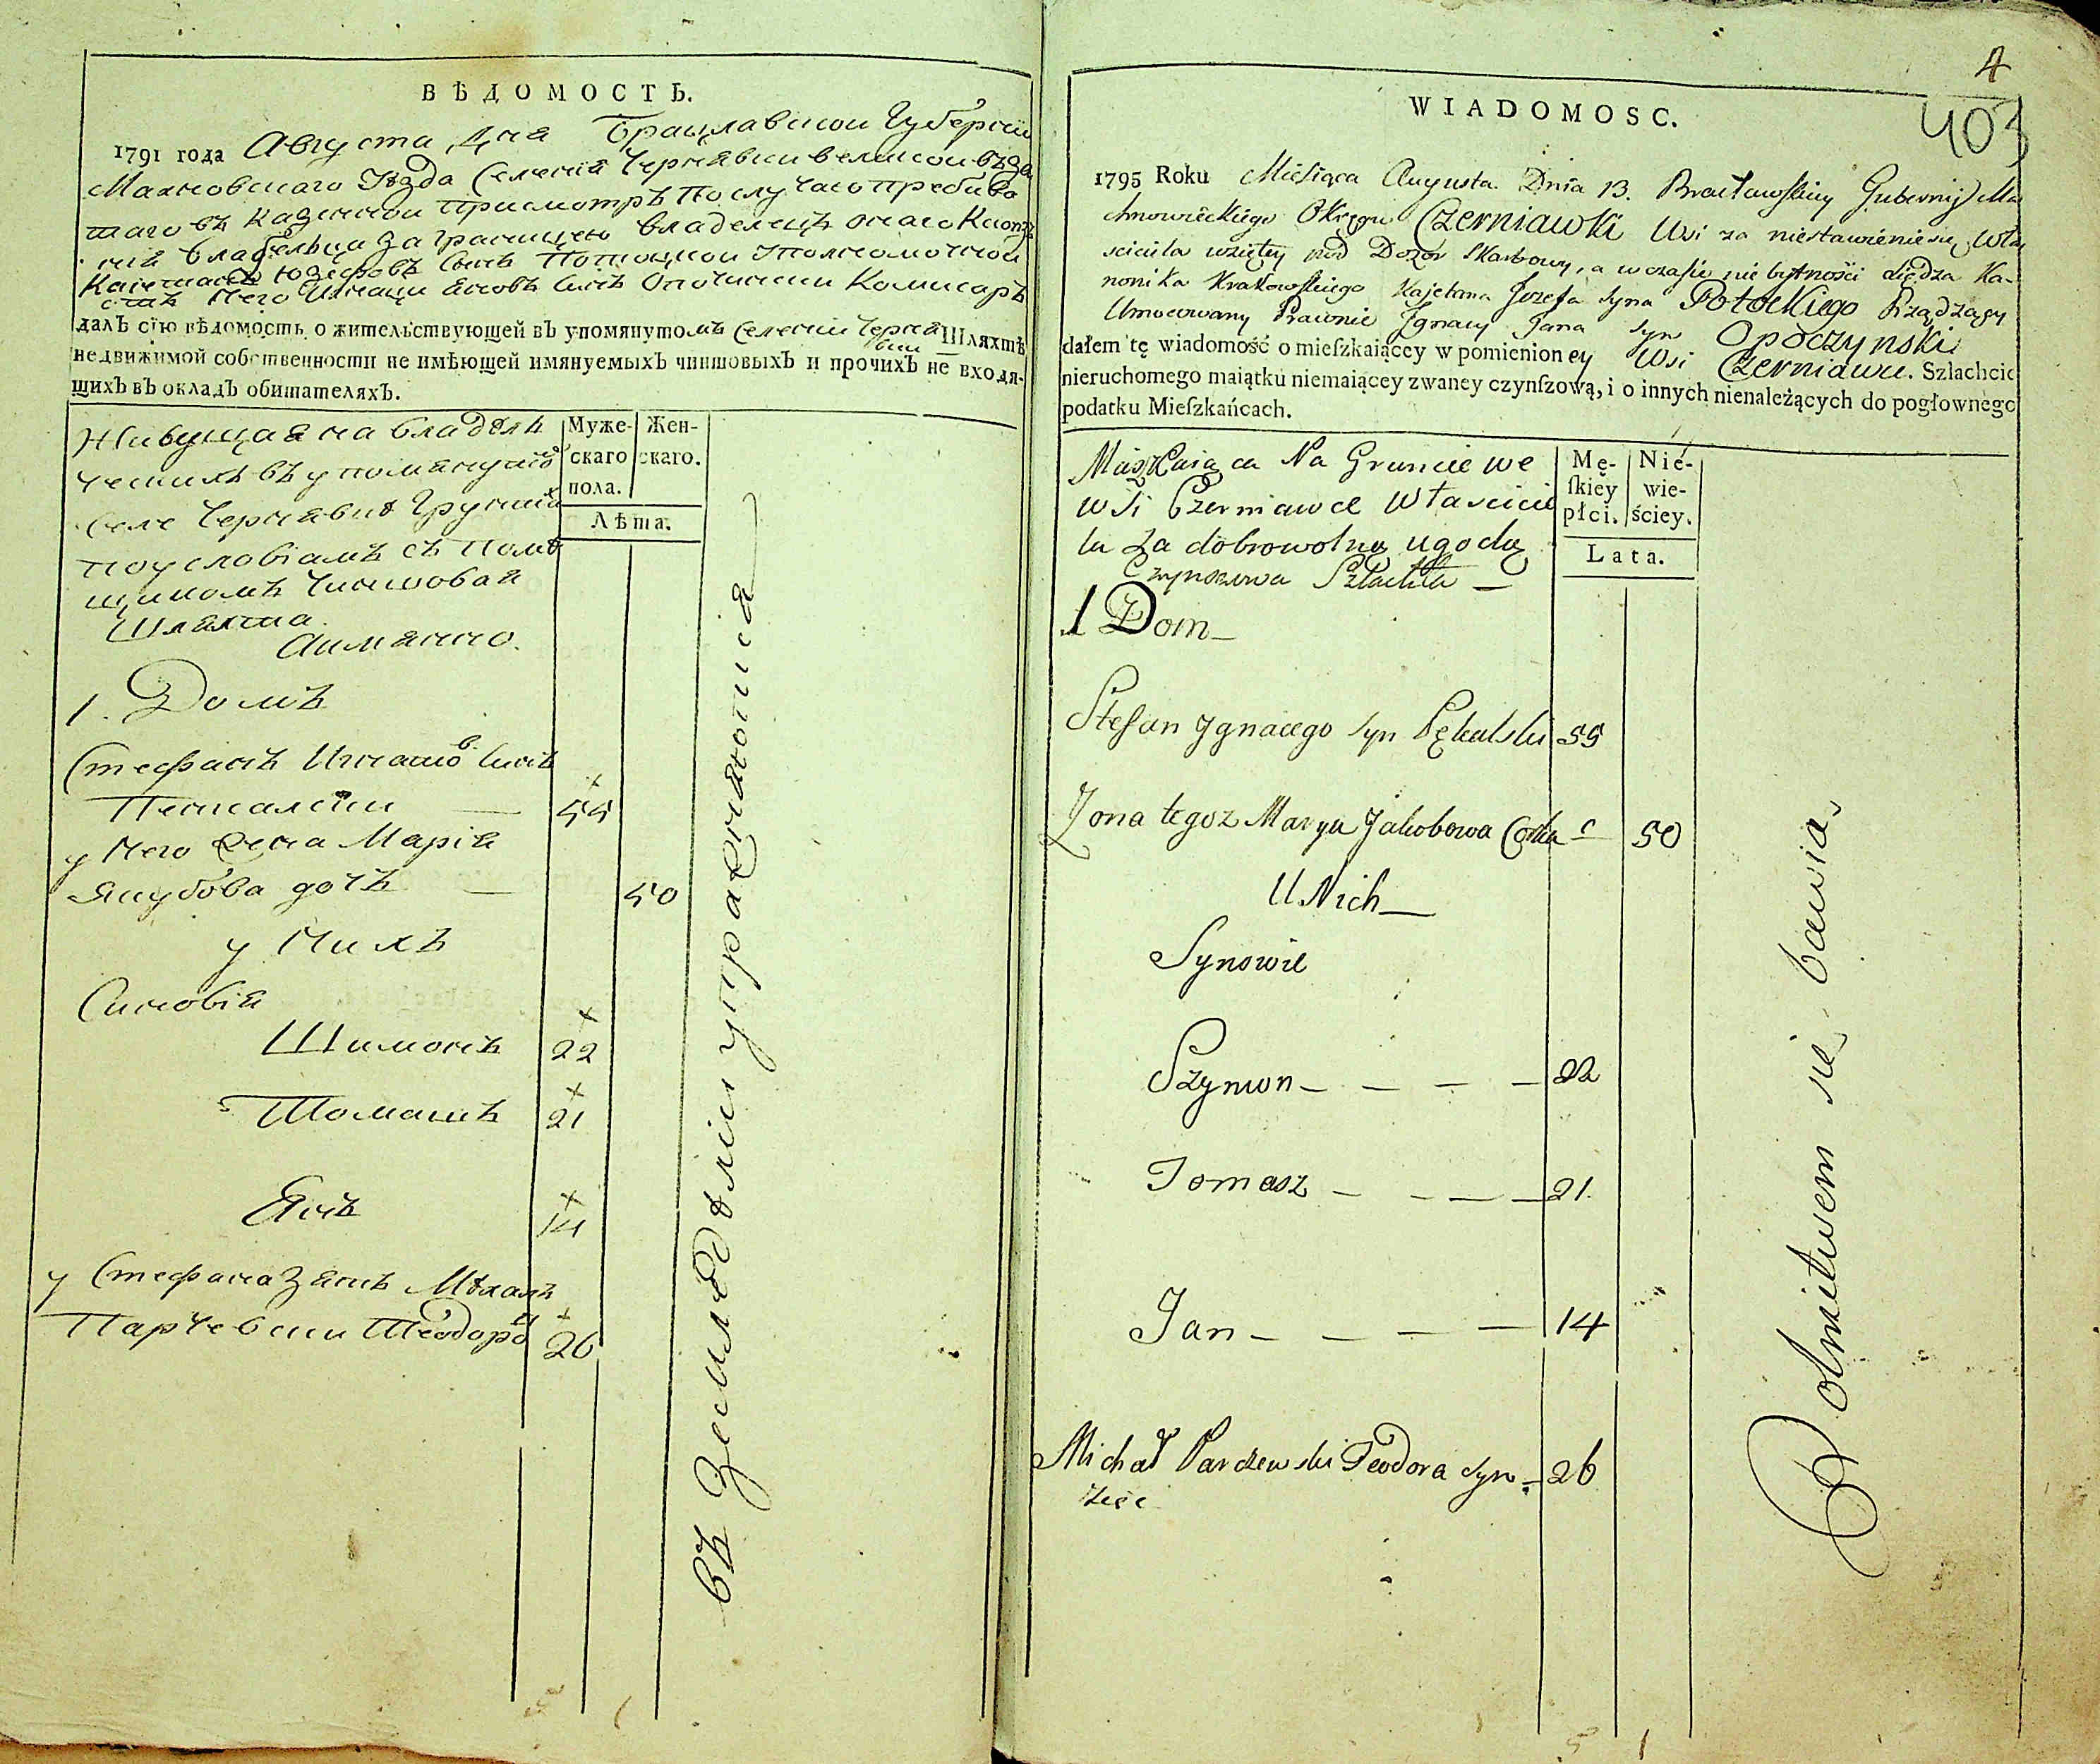 ВѢДОМОСТЬ.
1791 года Августа дня Брацлавской Губерніи
Махновскаго Уѣзда Селенія Чернявки великой взя
таго въ казенной присмотръ по случаю пребыва
нія владельца за границею владелецъ онаго Канон
Каіетанъ Юзефовъ Синъ Потоцкой Уполномочной
отъ него Игнаци Яновъ Синъ Опочински Комисаръ
далъ сїю вѣдомость о жительствующей въ упомянутомъ селеніи Черня
вки Шляхтѣ
недвижимой собственности не имѣющей имянуемыхъ чиншовыхъ и прочихъ не входя-
щихъ въ окладъ обитателяхъ.
Живущая на владѣль
ческихъ въ упомянутой
селе Чернявкѣ Грунтѣ
по условіамъ съ Помѣ
щикомъ Чиншовая
Шляхта.
А имянно.
Муже-
скаго
пола.
Жен-
скаго.
Лѣта.
1. Домъ
Стефанъ Игнацов Синъ
Пенкалски — 55
у Него Жена Марія
Якубова дочъ — 50
у Нихъ
Синовія
Шимонъ 22
Томашъ 21
Янъ 14
у Стефана Зять Мѣхалъ
Парчевски Теодоро 26
въ Земледѣліи упражняются
4
403
WIADOMOSC.
1795 Roku Miesiąca Augusta Dnia 13. Bracławskiey Gubernij Ma
chnowieckiego Okręgu Czerniawki Wsi za niestawienie się Wła
sciciela wziętey pod Dozor Skarbowy, a w czasie nie bytności Xiędza Ka-
nonika Krakowskiego Kajetana Jozefa Syna Potockiego Rządzący
Umocowany Prawnie Ignacy Jana Syn Opoczynski
dałem tę wiadomość o mieſzkaiącey w pomienioney Wsi Czerniawce. Szlachcie
nieruchomego maiątku niemaiącey zwaney czynſzową, i o innych nienależących do pogłownego
podatku Mieſzkańcach.
Mięszkaiąca Na Gruncie we
wsi Czerniawce Własciciе
la za dobrowolną ugodą
Czynszowa Szlachta —
Mę-
ſkiey
płci.
Nie-
wie-
ściey.
Lata.
1 Dom —
Stefan Ignacego Syn Pękalski 55
Zona tegoz Marya Jakobowa Corka — 50
U Nich —
Synowie
Szymon — — — — 22
Tomasz — — — — 21.
Jan — — — — 14
Michał Parczewski Teodora Syn — 26
Zięc
Rolnictwem się bawią